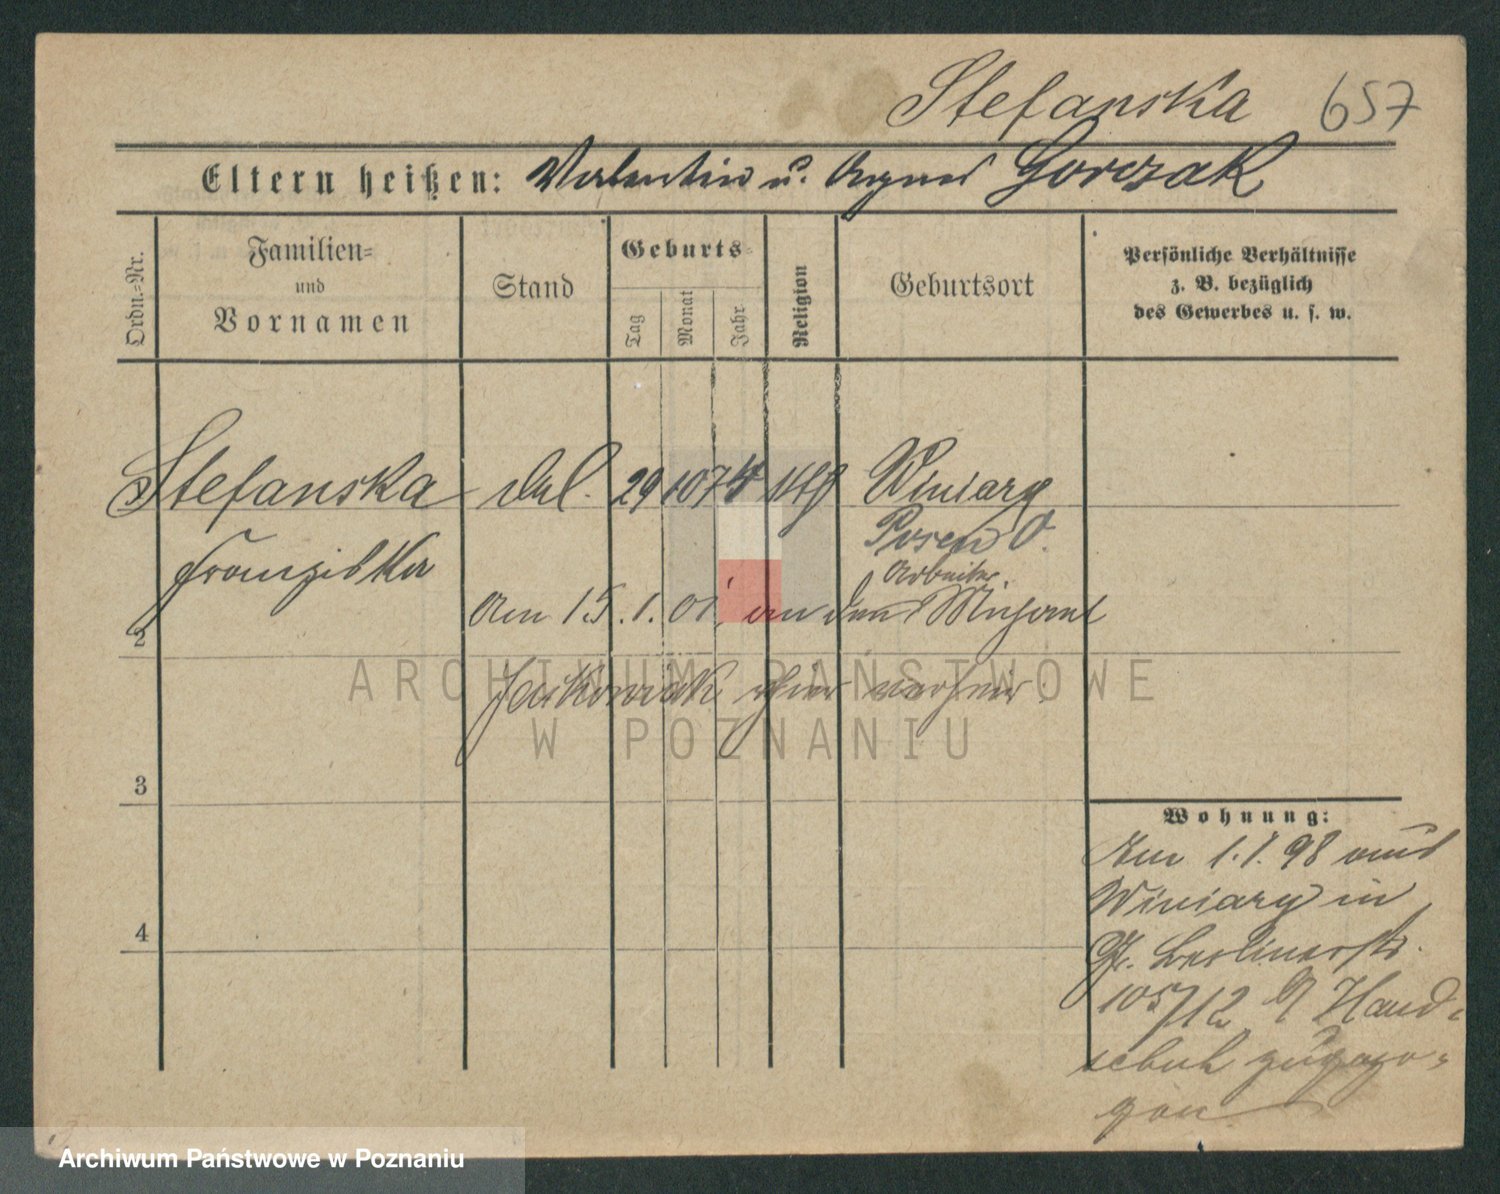 Stefanska 657
Eltern heißen: Valentin u. Agnes Gorczak
Ordn.=Nr.
Familien=
und
Vornamen
Stand
Geburts=
Tag
Monat
Jahr
Religion
Geburtsort
Persönliche Verhältnisse
z. B. bezüglich
des Gewerbes u. s. w.
Stefanska led. 29 10 74 kth Winiary
Franziska Posen O.
Arbeiter
Am 15.1.01, an den
2
Jaskowiak hier verheir.
ARCHIWUM PAŃSTWOWE
W POZNANIU
3
Wohnung:
Am 1.1.98 aus
Winiary in
Gr. Berlinerstr.
105/12 b/ Hand=
schuh zugezo=
gen
4
Archiwum Państwowe w Poznaniu